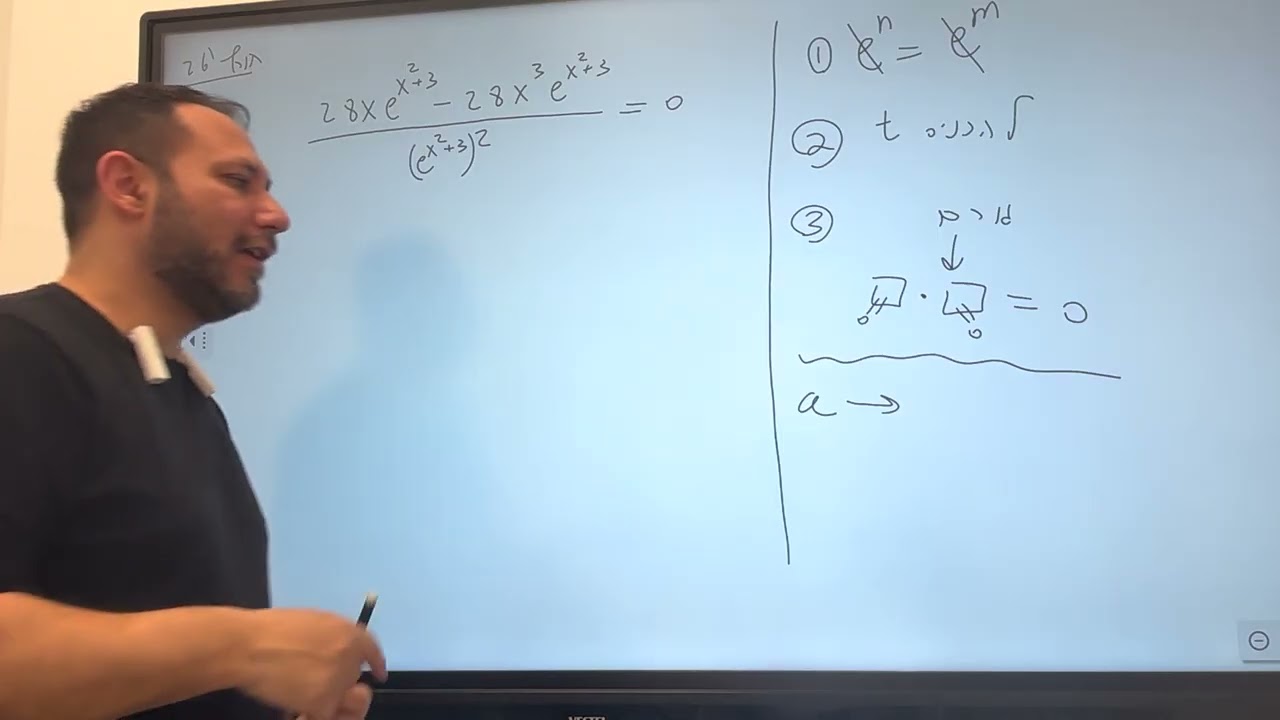 28xe^{x^2+3} - 28x^3 e^{x^2+3} / (e^{x^2+3})^2 = 0
① e^n = e^m
② t
③
□ · □ = 0
0 0
a →